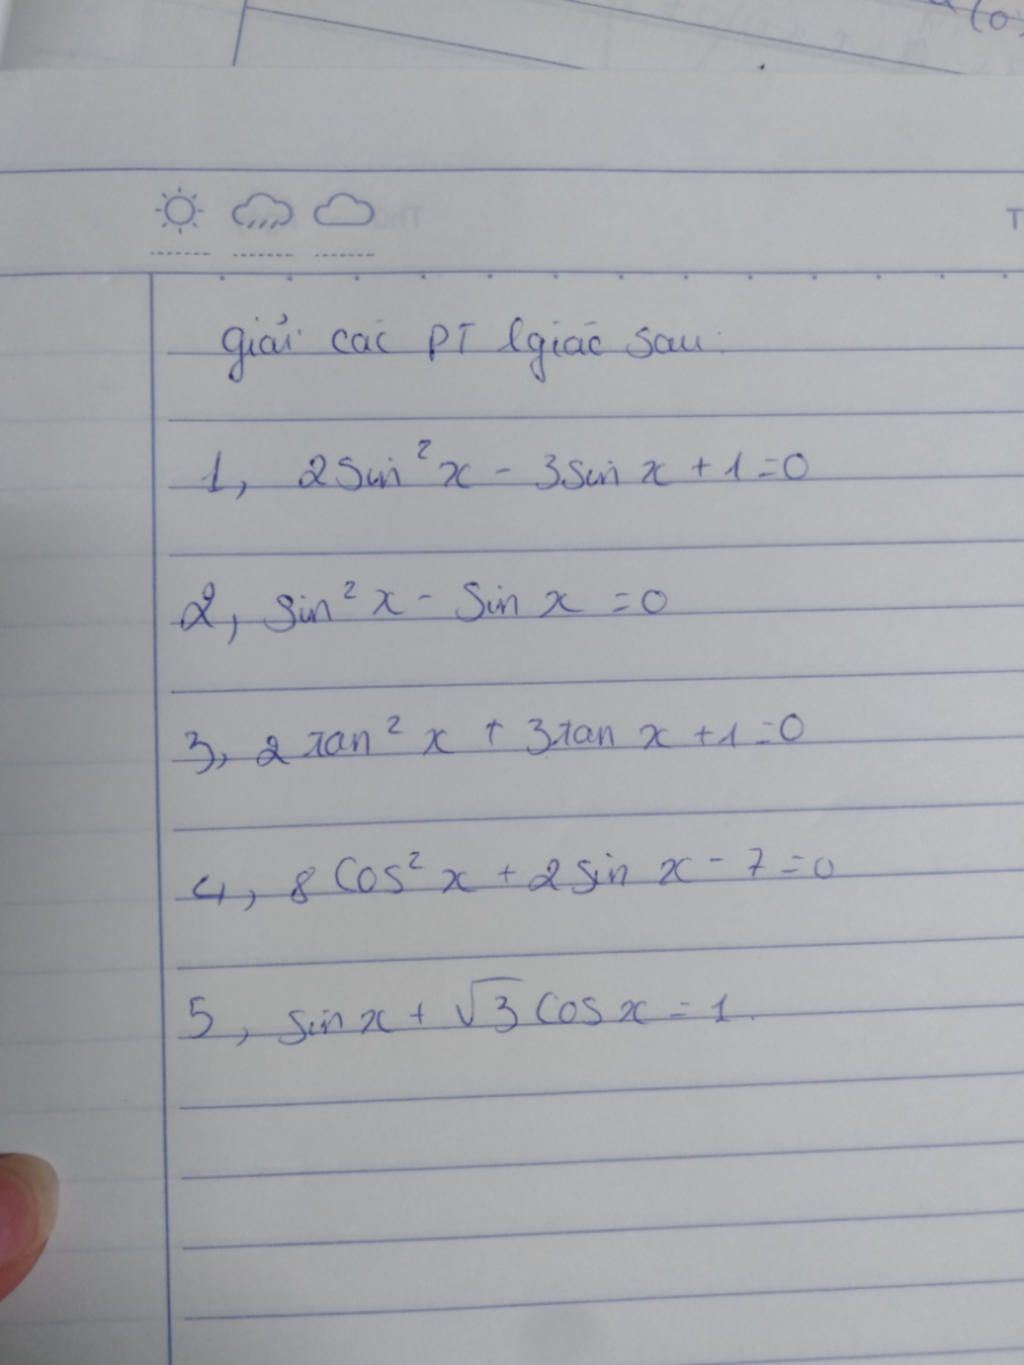 (0
T
giải các PT lgiác sau:
1, 2sin²x - 3sin x + 1 = 0
2, sin²x - sin x = 0
3, 2 tan² x + 3tan x + 1 = 0
4, 8 cos² x + 2 sin x - 7 = 0
5, sin x + √3 cos x = 1.